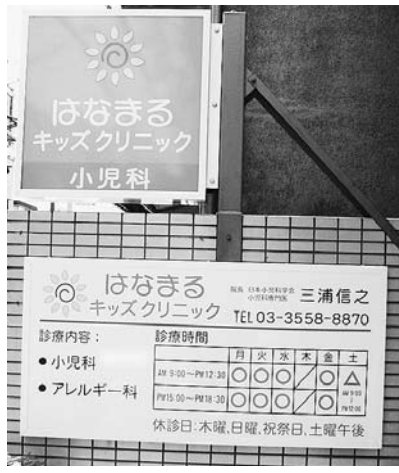 はなまる
キッズクリニック
小児科
はなまる
キッズクリニック
院長 日本小児科学会
小児科専門医
三浦信之
TEL 03-3558-8870
診療内容:
●小児科
●アレルギー科
診療時間
月 火 水 木 金 土
AM 9:00~PM12:30 ○ ○ ○ / ○ △
PM15:00~PM18:30 ○ ○ ○ / ○ AM 9:00 ~ PM12:00
休診日:木曜,日曜,祝祭日,土曜午後